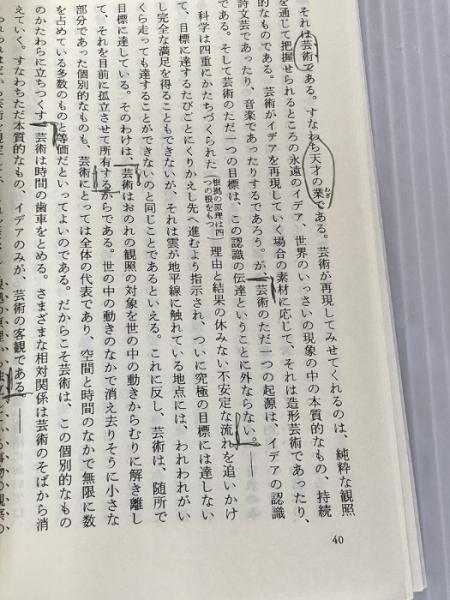 それは芸術である。すなわち天才の業わざである。芸術が再現してみせてくれるのは、純粋な観照
を通じて把握せられるところの永遠のイデア、世界のいっさいの現象の中の本質的なもの、持続
的なものである。芸術がイデアを再現していく場合の素材に応じて、それは造形芸術であったり、
詩文芸であったり、音楽であったりするであろう。が、芸術のただ一つの起源は、イデアの認識
である。そして芸術のただ一つの目標は、この認識の伝達ということに外ならない。――
科学は四重にかたちづくられた(根拠の原理は四つの根をもつ)理由と結果の休みない不安定な流れを追いかけ
て、目標に達するたびごとにくりかえし先へ進むよう指示され、ついに究極の目標には達しない
し完全な満足を得ることもできないが、それは雲が地平線に触れている地点には、われわれがい
くら走っても達することができないのと同じことであるといえる。これに反し、芸術は、随所で
目標に達している。そのわけは、芸術はおのれの観照の対象を世の中の動きからむりに解き離し
て、それを目前に孤立させて所有するからである。世の中の動きのなかで消え去りそうに小さな
部分であった個別的なものも、芸術にとっては全体の代表であり、空間と時間のなかで無限に数
を占めている多数のものと等価だといってよいのである。だからこそ芸術は、この個別的なもの
のかたわらに立ちつくす。芸術は時間の歯車をとめる。さまざまな相対関係は芸術のそばから消
えていく。すなわちただ本質的なもの、イデアのみが、芸術の客観である。――
40